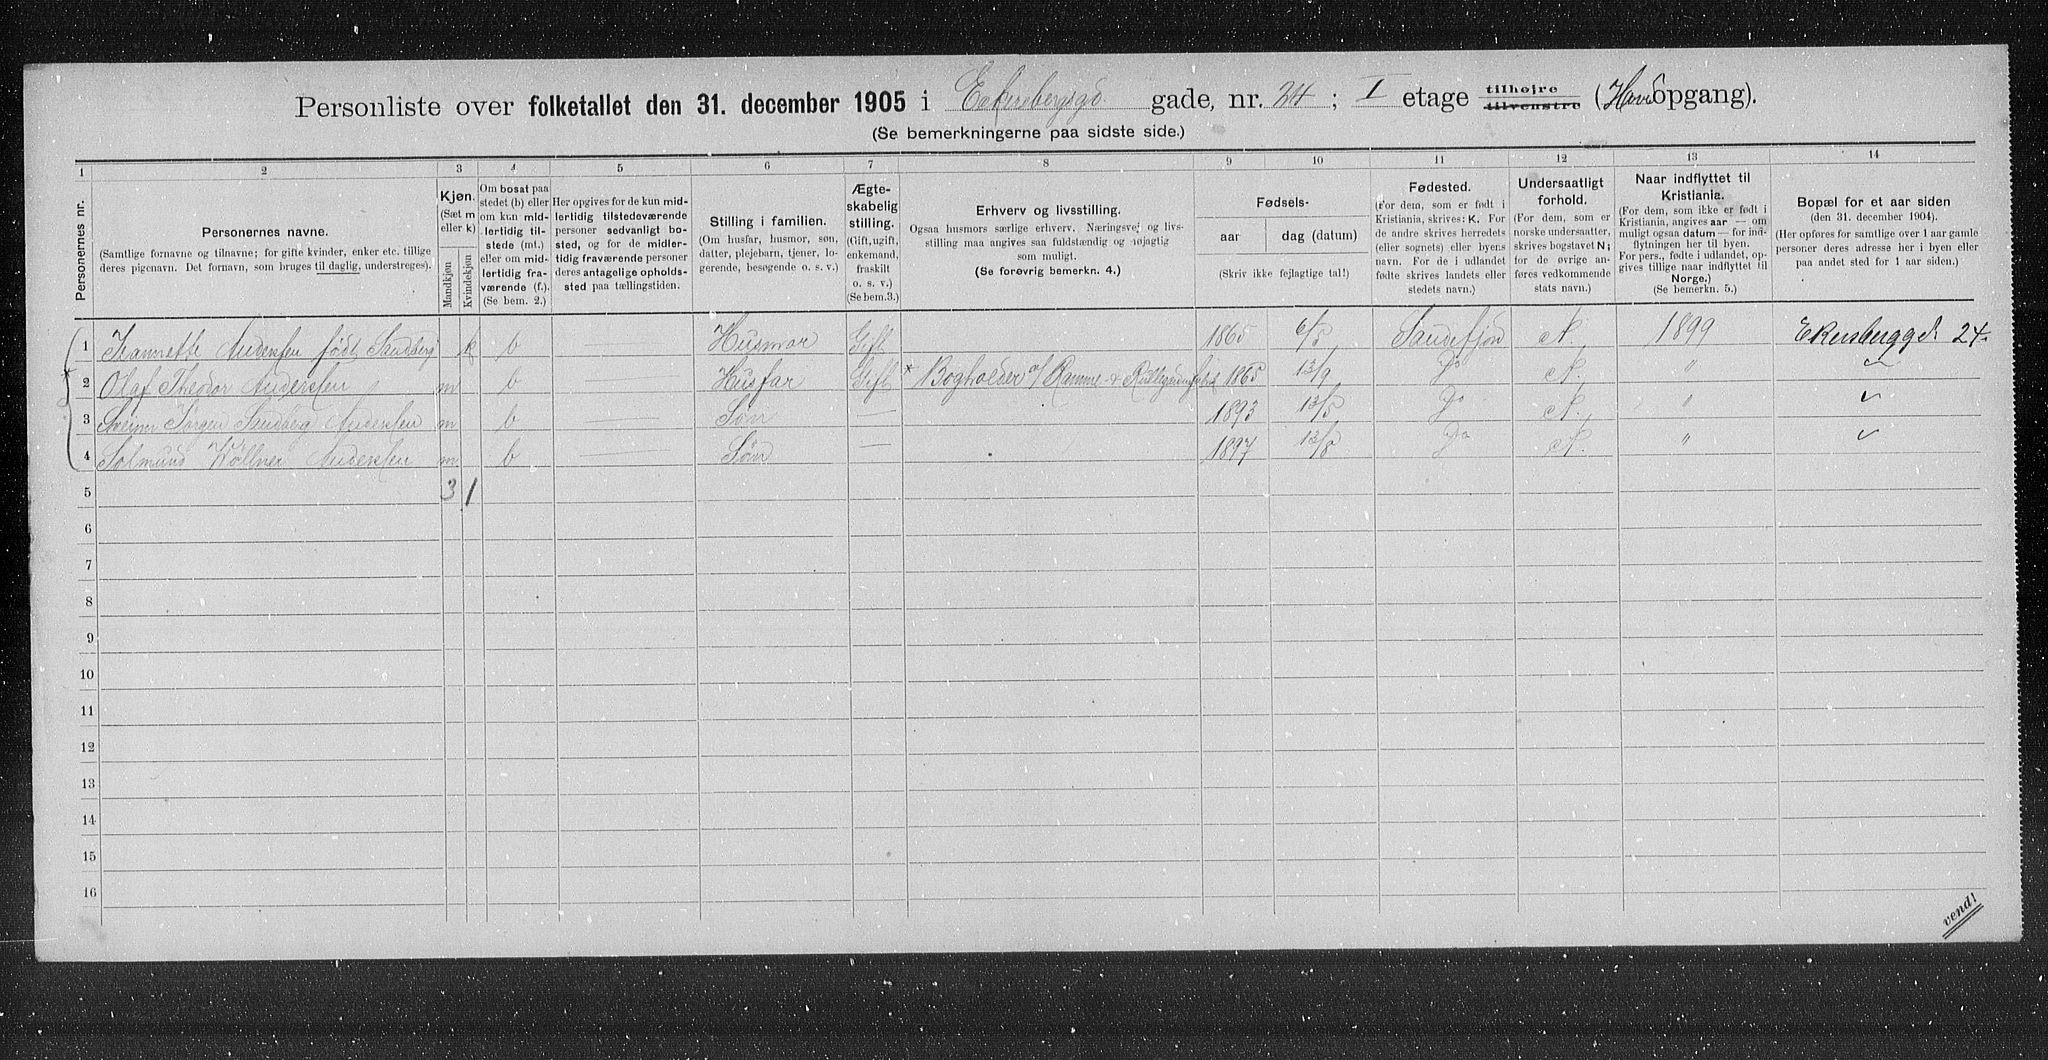 Personliste over folketallet den 31. december 1905 i Eckersbergsgd. gade, nr. 24 ; I etage tilhøjre tilvenstre (Hovedopgang).
(Se bemerkningerne paa sidste side.)
1 2 3 4 5 6 7 8 9 10 11 12 13 14
Personernes nr.
Personernes navne.
(Samtlige fornavne og tilnavne; for gifte kvinder, enker etc. tillige
deres pigenavn. Det fornavn, som bruges til daglig, understreges).
Kjøn.
(Sæt m
eller k)
Mandkjøn
Kvindekjøn
Om bosat paa
stedet (b) eller
om kun mid-
lertidig til-
stede (mt.)
eller om mid-
lertidig fra-
værende (f.).
(Se bem. 2.)
Her opgives for de kun mid-
lertidig tilstedeværende
personer sedvanligt bo-
sted, og for de midler-
tidig fraværende personer
deres antagelige opholds-
sted paa tællingstiden.
Stilling i familien.
(Om husfar, husmor, søn,
datter, plejebarn, tjener, lo-
gerende, besøgende o. s. v.)
Ægte-
skabelig
stilling.
(Gift, ugift,
enkemand,
fraskilt
o. s. v.)
(Se bem.3.)
Erhverv og livsstilling.
Ogsaa husmors særlige erhverv. Næringsvej og livs-
stilling maa angives saa fuldstændig og nøjagtig
som muligt.
(Se forøvrig bemerkn. 4.)
Fødsels-
aar
dag (datum)
(Skriv ikke fejlagtige tal!)
Fødested.
(For dem, som er født i
Kristiania, skrives: K. For
de andre skrives herredets
(eller sognets) eller byens
navn. For de i udlandet
fødte skrives landets eller
stedets navn.)
Undersaatligt
forhold.
(For dem, som er
norske undersaatter,
skrives bogstavet N;
for de øvrige an-
føres vedkommende
stats navn.)
Naar indflyttet til
Kristiania.
(For dem, som ikke er født i
Kristiania, angives aar — om
muligt ogsaa datum — for ind-
flytningen her til byen.
For pers., fødte i udlandet, op-
gives tillige naar indflyttet til
Norge.)
(Se bemerkn. 5.)
Bopæl for et aar siden
(den 31. december 1904).
(Her opføres for samtlige over 1 aar gamle
personer deres adresse her i byen eller
paa andet sted for 1 aar siden.)
1 Jeannette Andersen født Sandberg k b Husmor Gift 1865 6/5 Sandefjord N. 1899 Ekersbergd 24
2 Olaf Theodor Andersen m b Husfar Gift * Bogholder v/ Ramme & 1865 13/9 Do N. "
3 Jørgen Sandberg Andersen m b Søn — 1893 13/5 Do N. "
4 Solmund Köllner Andersen m b Søn — 1897 13/8 Do N. "
5 3 1
6
7
8
9
10
11
12
13
14
15
16
vend!